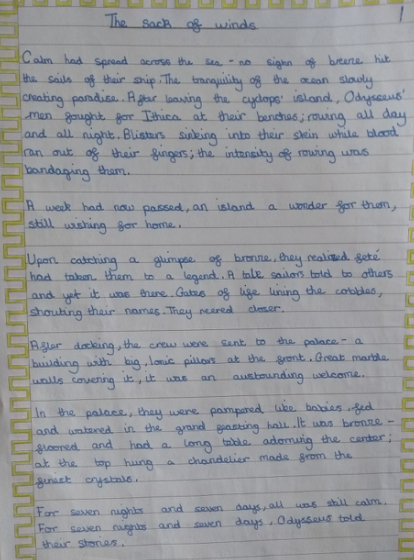 1
The sack of winds
Calm had spread across the sea - no sign of breeze hit
the sails of their ship. The tranquility of the ocean slowly
creating paradise. After leaving the cyclops' island, Odysseus'
men fought for Ithica at their benches; rowing all day
and all night. Blisters sinking into their skin while blood
ran out of their fingers; the intensity of rowing was
bandaging them.
A week had now passed, an island a wonder for them,
still wishing for home.
Upon catching a glimpse of bronze, they realised fate
had taken them to a legend. A tale sailors told to others
and yet it was there. Gates of life lining the cobbles,
shouting their names. They neared closer.
After docking, the crew were sent to the palace - a
building with big, Ionic pillars at the front. Great marble
walls covering it, it was an austounding welcome.
In the palace, they were pampered like babies, fed
and watered in the grand feasting hall. It was bronze -
floored and had a long table adorning the center;
at the top hung a chandelier made from the
finest crystals.
For seven nights and seven days, all was still calm.
For seven nights and seven days, Odysseus told
their stories.